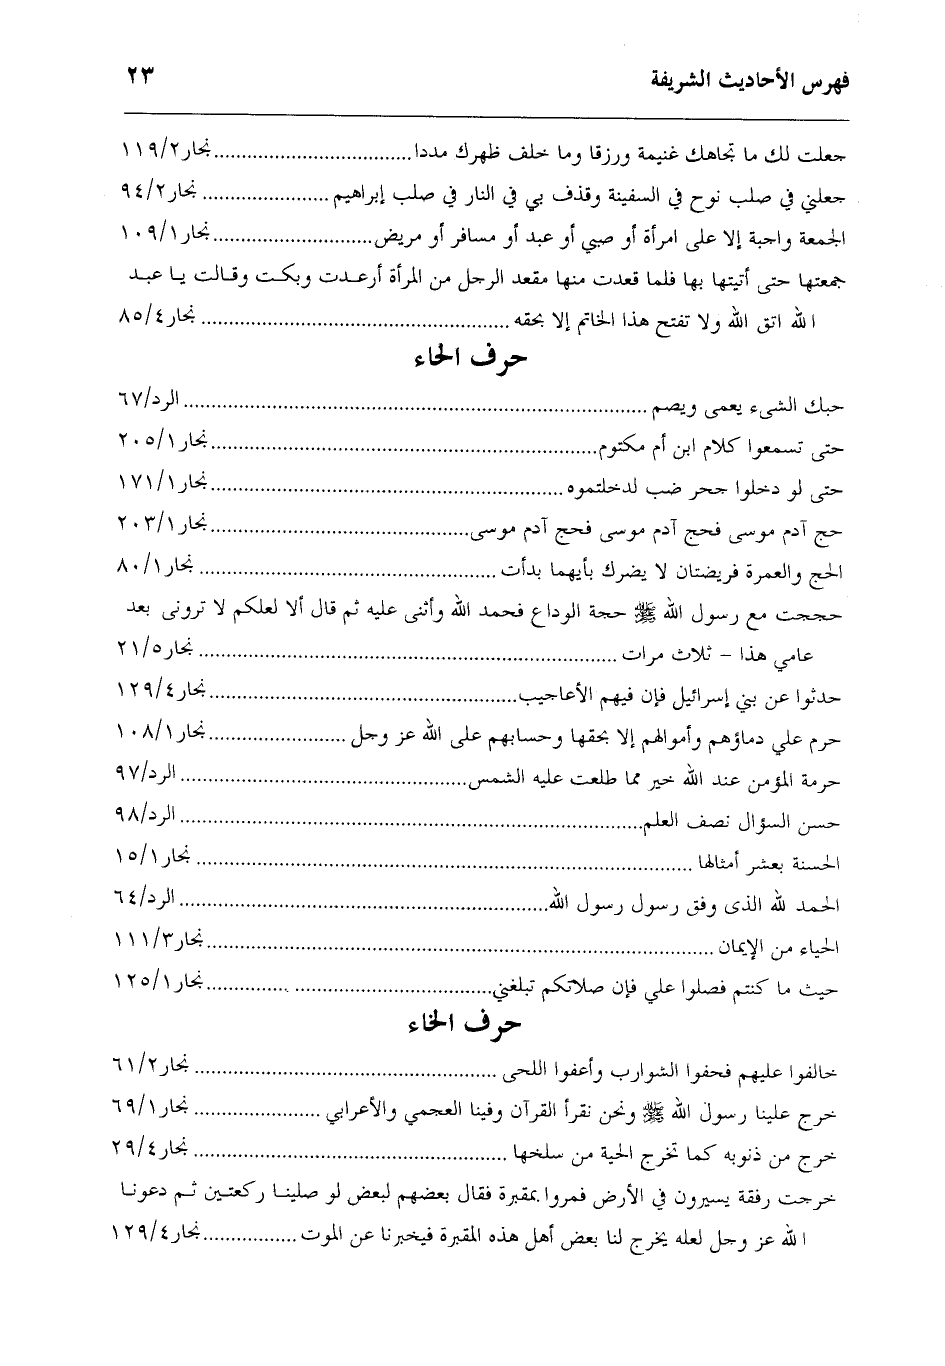 فهرس الأحاديث الشريفة ٢٣
جعلت لك ما تجاهك غنيمة ورزقا وما خلف ظهرك مددا.....نجار١١٩/٢
جعلني في صلب نوح في السفينة وقذف بي في النار في صلب إبراهيم.....نجار٩٤/٢
الجمعة واجبة إلا على امرأة أو صبي أو عبد أو مسافر أو مريض.....نجار١٠٩/١
جمعتها حتى أتيتها بها فلما قعدت منها مقعد الرجل من المرأة أرعدت وبكت وقالت يا عبد
الله اتق الله ولا تفتح هذا الخاتم إلا بحقه.....نجار٨٥/٤
حرف الحاء
حبك الشىء يعمى ويصم.....الرد/٦٧
حتى تسمعوا كلام ابن أم مكتوم.....نجار٢٠٥/١
حتى لو دخلوا جحر ضب لدخلتموه.....نجار١٧١/١
حج آدم موسى فحج آدم موسى فحج آدم موسى.....نجار٢٠٣/١
الحج والعمرة فريضتان لا يضرك بأيهما بدأت.....نجار٨٠/١
حججت مع رسول الله ﷺ حجة الوداع فحمد الله وأثنى عليه ثم قال ألا لعلكم لا ترونى بعد
عامي هذا – ثلاث مرات.....نجار٢١/٥
حدثوا عن بني إسرائيل فإن فيهم الأعاجيب.....نجار١٢٩/٤
حرم علي دماؤهم وأموالهم إلا بحقها وحسابهم على الله عز وجل.....نجار١٠٨/١
حرمة المؤمن عند الله خير مما طلعت عليه الشمس.....الرد/٩٧
حسن السؤال نصف العلم.....الرد/٩٨
الحسنة بعشر أمثالها.....نجار١٥/١
الحمد لله الذى وفق رسول رسول الله.....الرد/٦٤
الحياء من الإيمان.....نجار١١١/٣
حيث ما كنتم فصلوا علي فإن صلاتكم تبلغني.....نجار١٢٥/١
حرف الخاء
خالفوا عليهم فحفوا الشوارب وأعفوا اللحى.....نجار٦١/٢
خرج علينا رسول الله ﷺ ونحن نقرأ القرآن وفينا العجمي والأعرابي.....نجار٦٩/١
خرج من ذنوبه كما تخرج الحية من سلخها.....نجار٢٩/٤
خرجت رفقة يسيرون في الأرض فمروا بمقبرة فقال بعضهم لبعض لو صلينا ركعتين ثم دعونا
الله عز وجل لعله يخرج لنا بعض أهل هذه المقبرة فيخبرنا عن الموت.....نجار١٢٩/٤